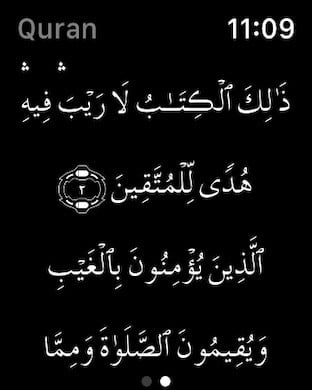 Quran 11:09
ذَٰلِكَ ٱلْكِتَـٰبُ لَا رَيْبَ ۛ فِيهِ ۛ
هُدًى لِّلْمُتَّقِينَ ٢
ٱلَّذِينَ يُؤْمِنُونَ بِٱلْغَيْبِ
وَيُقِيمُونَ ٱلصَّلَوٰةَ وَمِمَّا